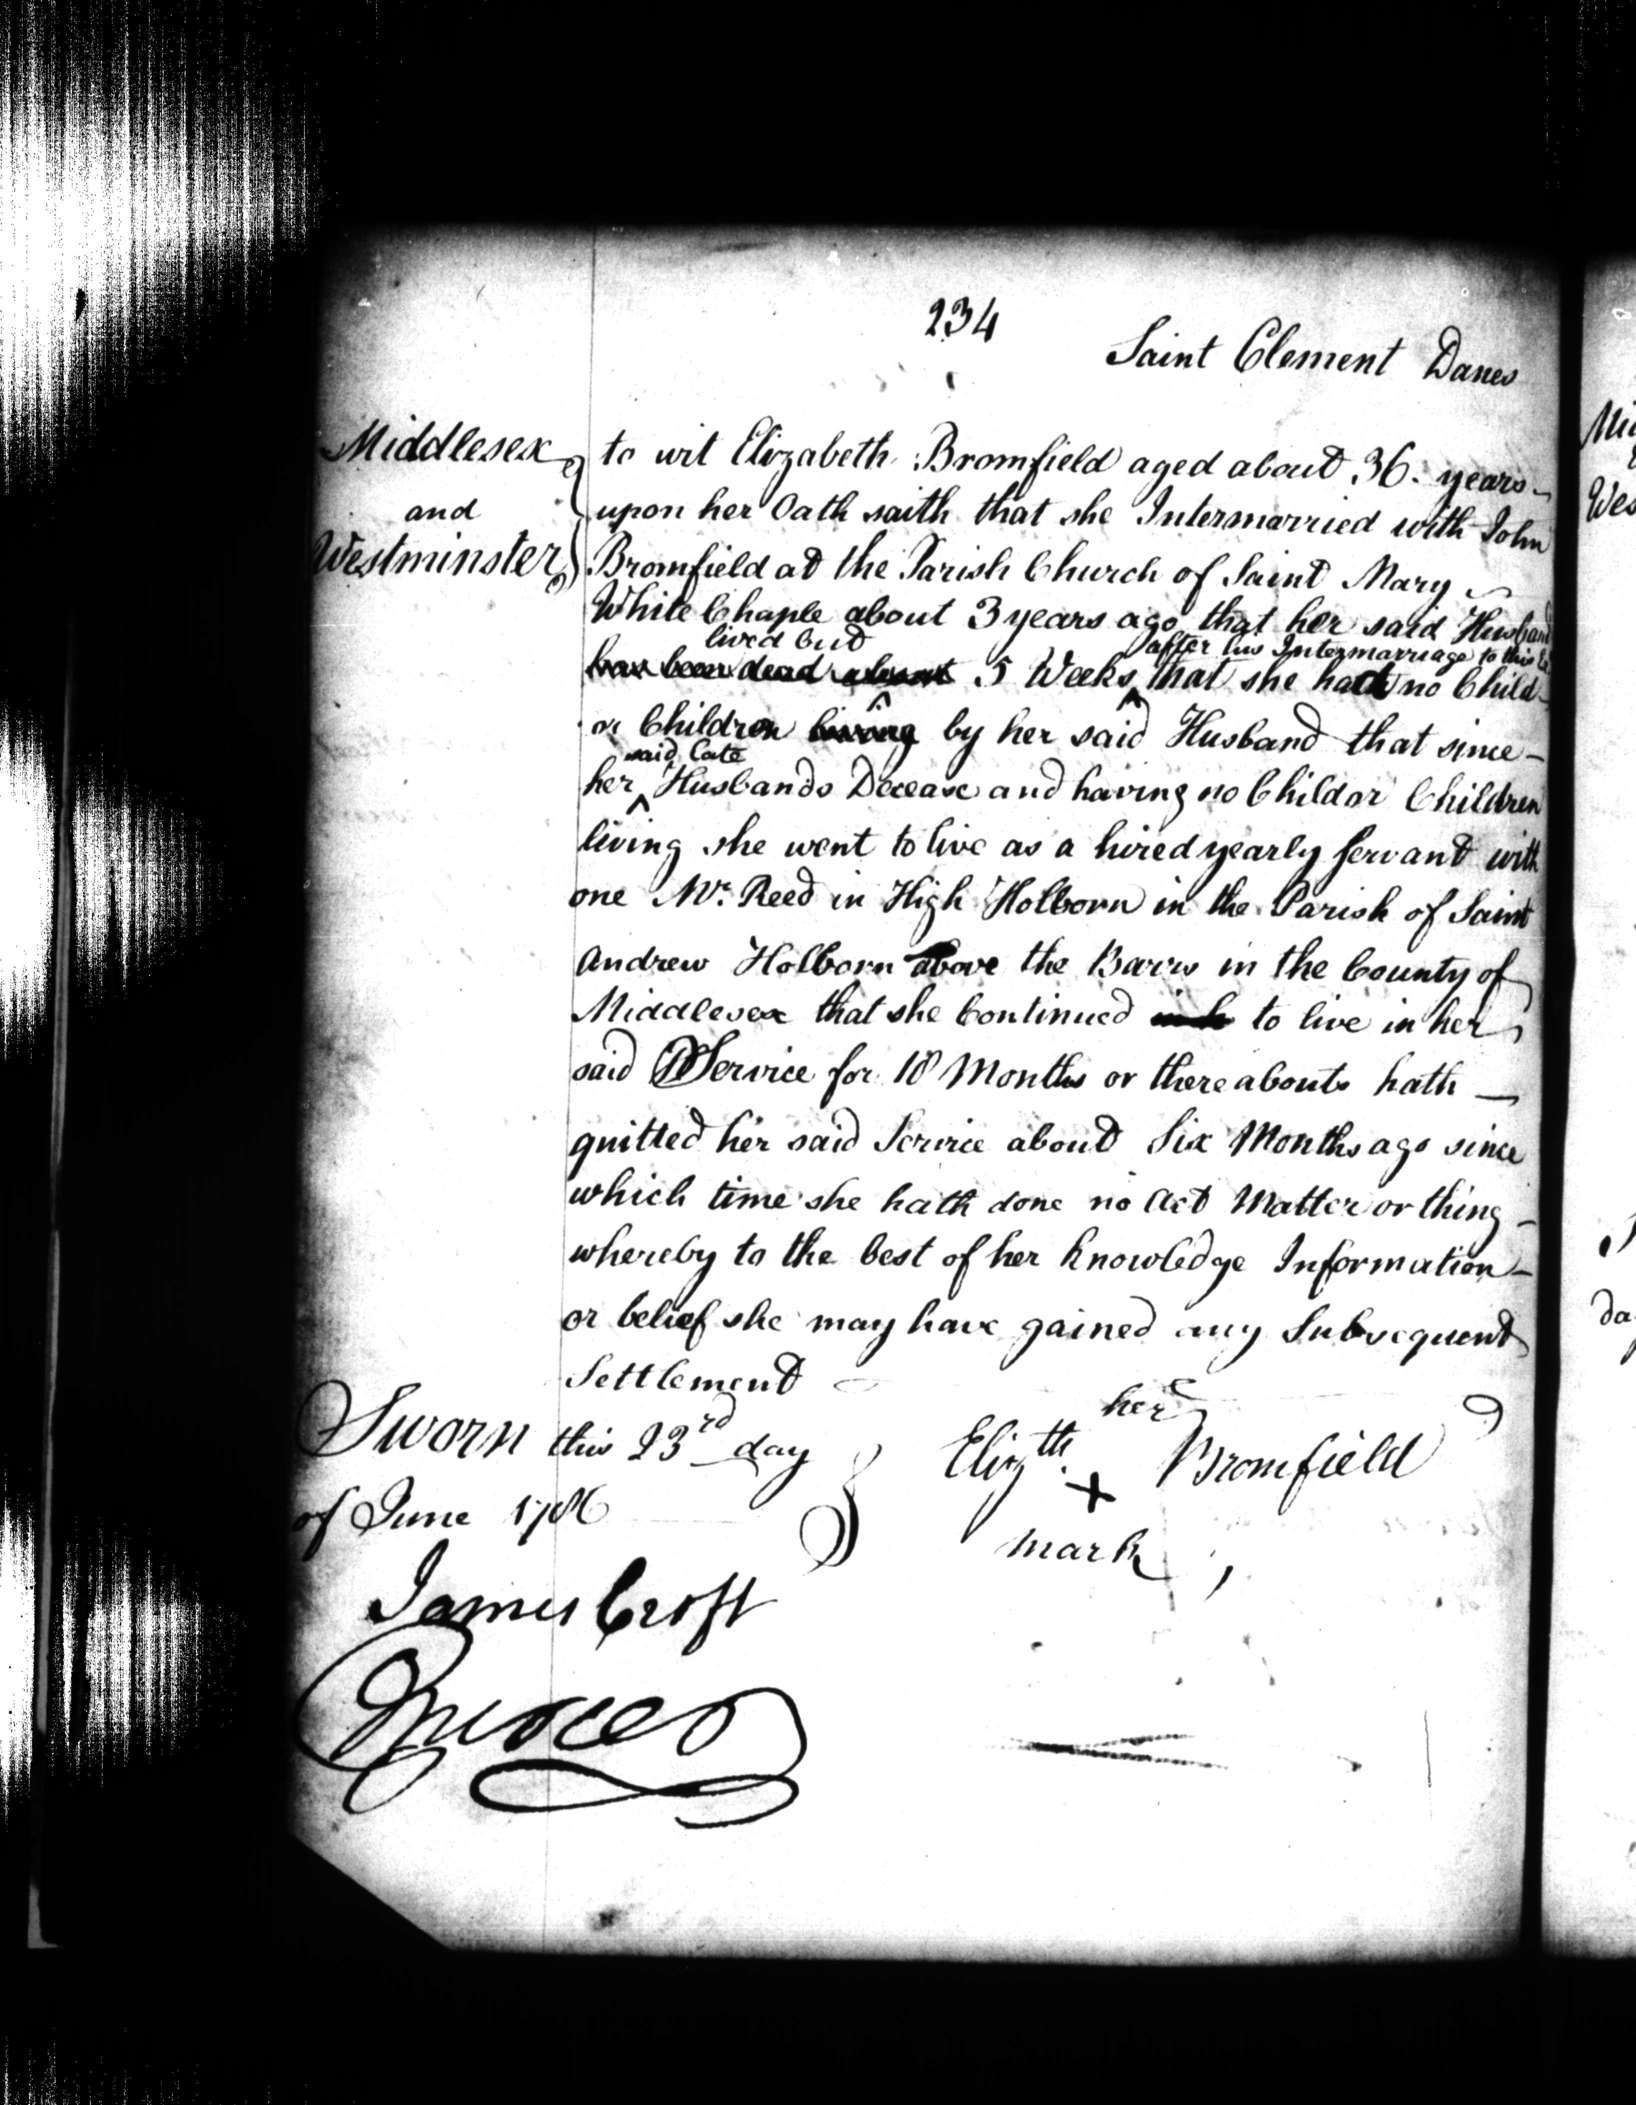 234
Saint Clement Danes
Middlesex
and
Westminster
to wit Elizabeth Bromfield aged about 36 years
upon her Oath saith that she Intermarried with John
Bromfield at the Parish Church of Saint Mary
White Chaple about 3 years ago that her said Husband
lived but after his Intermarriage to this
has been dead about 5 Weeks that she had no Child
or Children living by her said Husband that since
said late
her Husbands Decease and having no Child or Children
living she went to live as a hired yearly Servant with
one Mr. Reed in High Holborn in the Parish of Saint
Andrew Holborn above the Barrs in the County of
Middlesex that she Continued to live in her
said Service for 18 Months or thereabouts hath
quitted her said Service about Six Months ago since
which time she hath done no Act Matter or thing
whereby to the best of her knowledge Information
or belief she may have gained any Subsequent
Settlement
Sworn this 23rd day
of June 1786
her
Elizth. + Bromfield
mark
James Croft